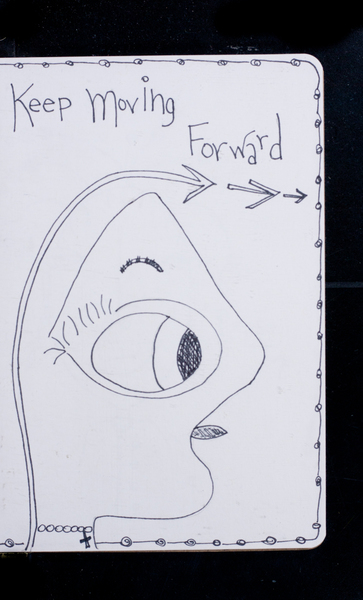 Keep Moving
Forward